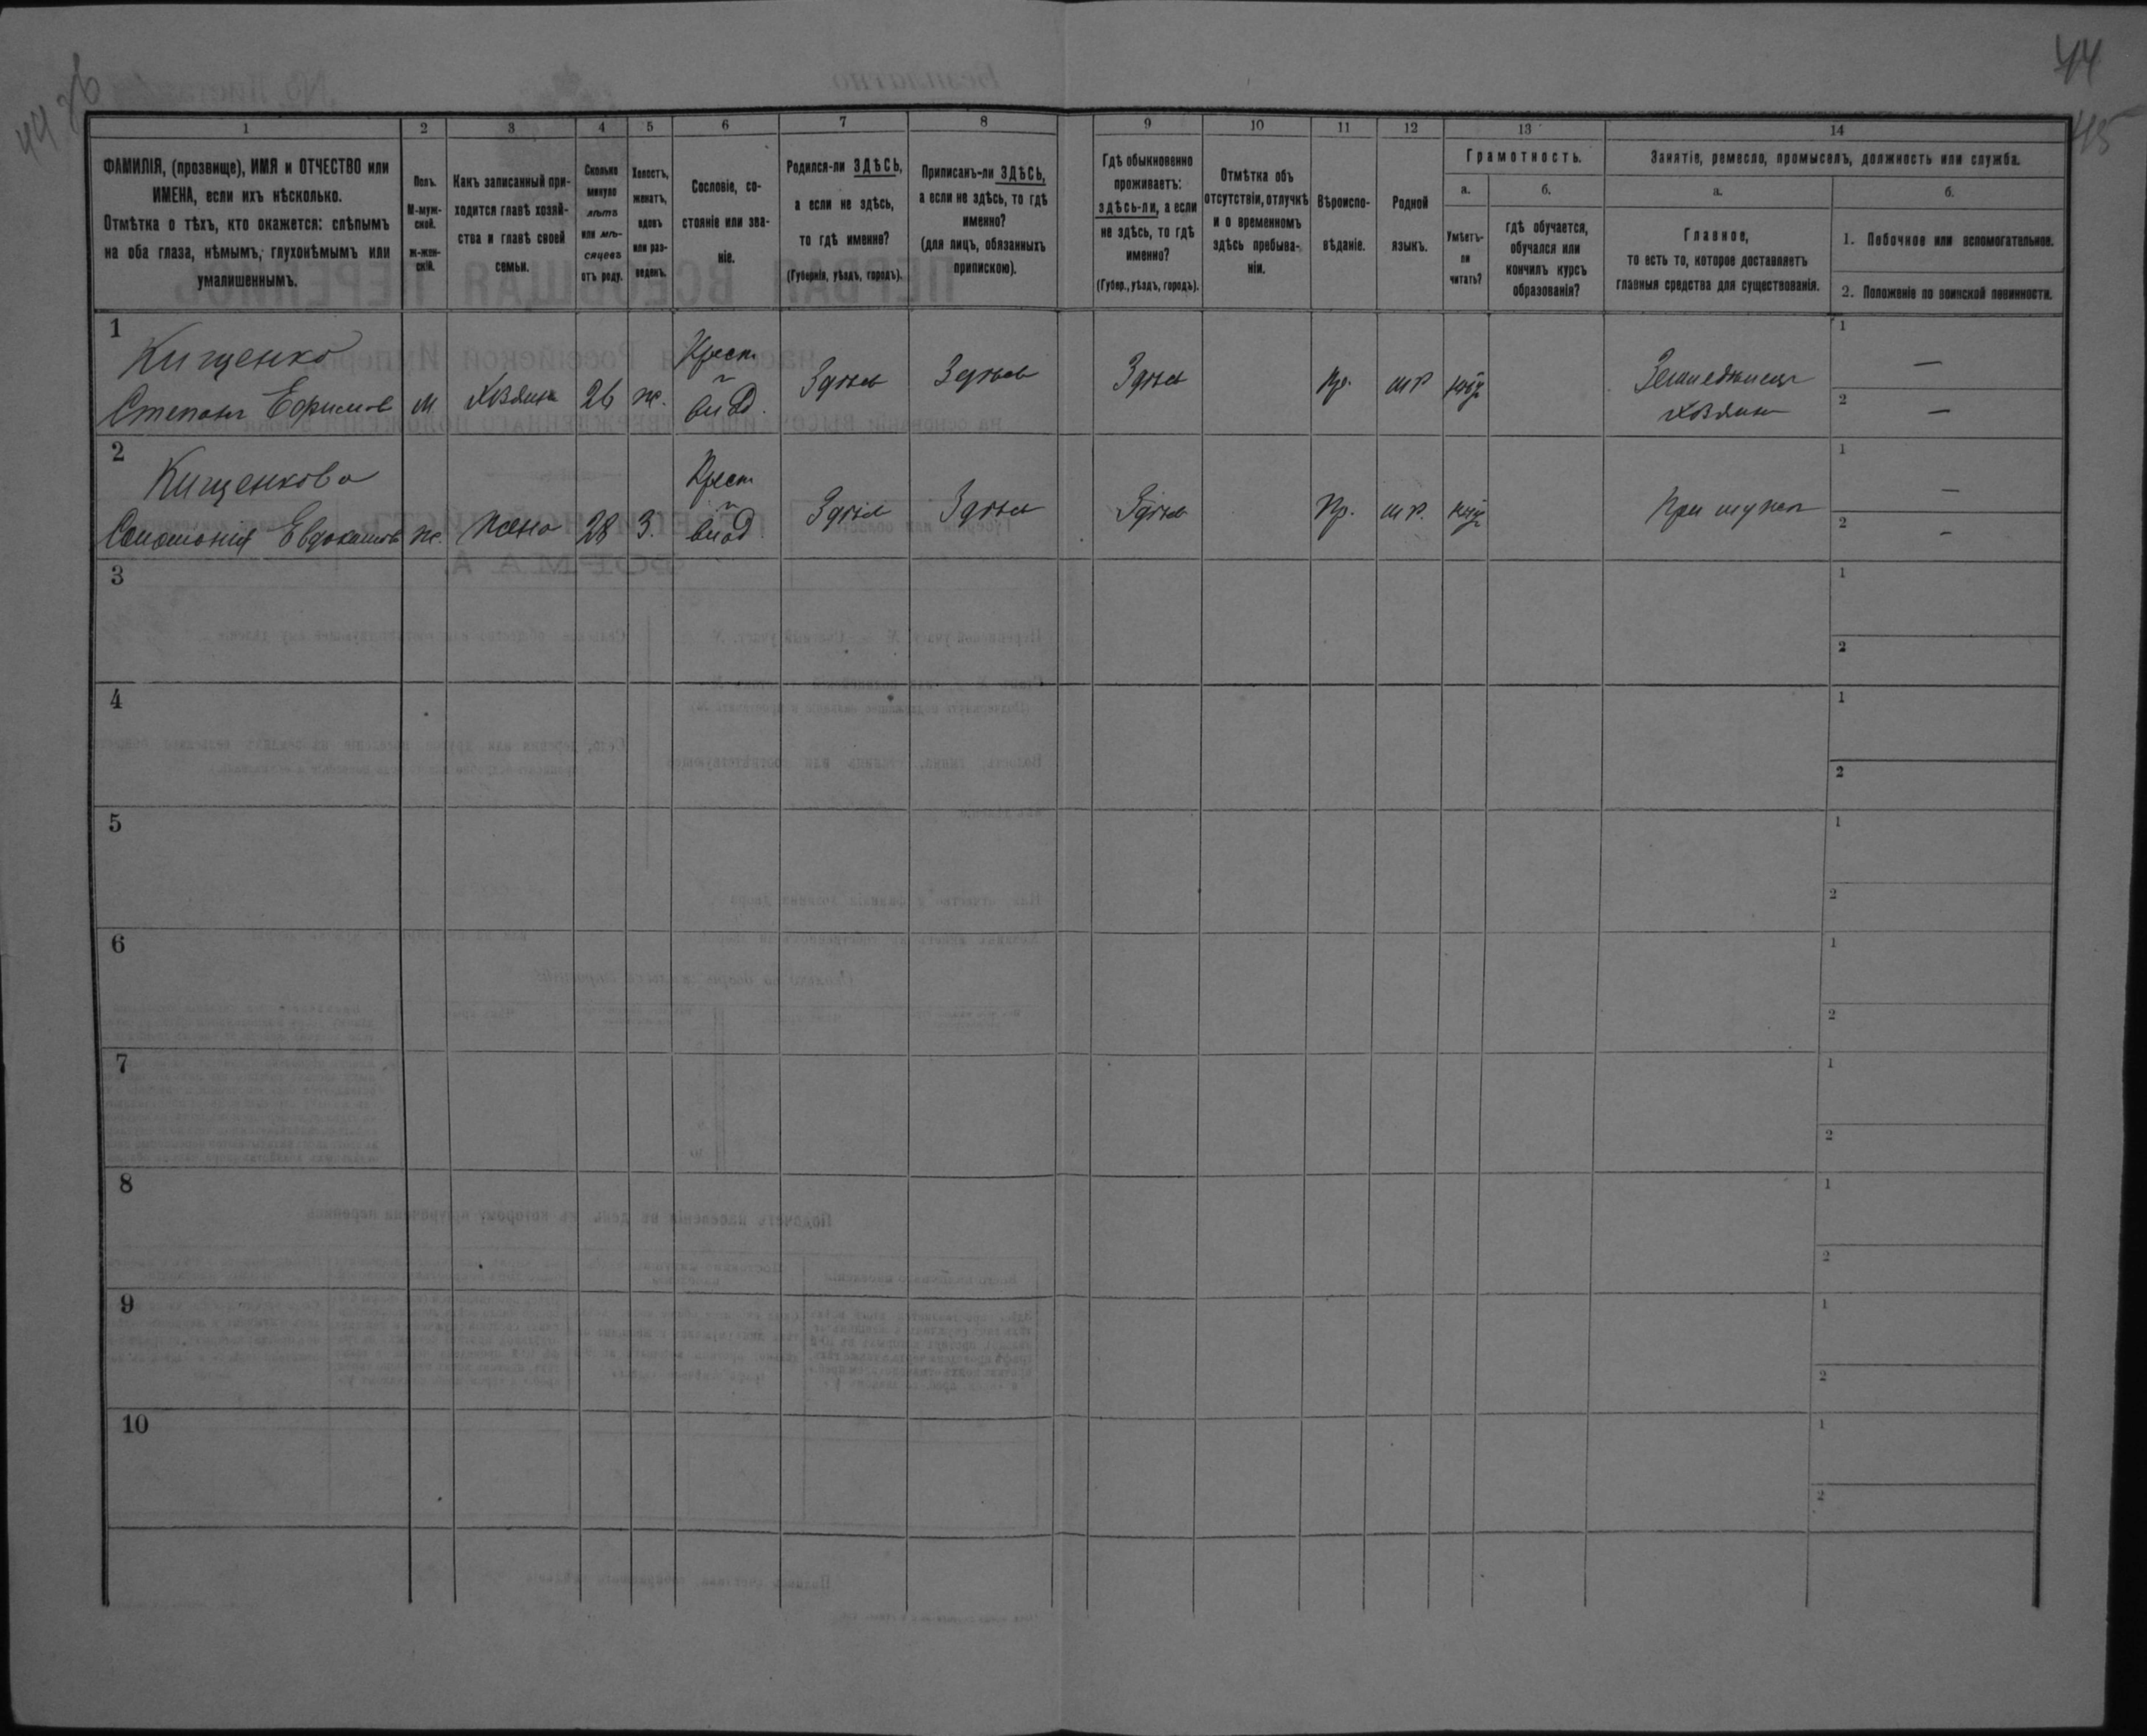 44
45
1
2
3
4
5
6
7
8
9
10
11
12
13
14
ФАМИЛІЯ, (прозвище), ИМЯ и ОТЧЕСТВО или
ИМЕНА, если ихъ нѣсколько.
Отмѣтка о тѣхъ, кто окажется: слѣпымъ
на оба глаза, нѣмымъ, глухонѣмымъ или
умалишеннымъ.
Полъ.
М-муж-
ской.
ж-жен-
скій.
Какъ записанный при-
ходится главѣ хозяй-
ства и главѣ своей
семьи.
Сколько
минуло
лѣтъ
или мѣ-
сяцевъ
отъ роду.
Холостъ,
женатъ,
вдовъ
или раз-
веденъ.
Сословіе, со-
стояніе или зва-
ніе.
Родился-ли ЗДѢСЬ,
а если не здѣсь,
то гдѣ именно?
(Губернія, уѣздъ, городъ).
Приписанъ-ли ЗДѢСЬ,
а если не здѣсь, то гдѣ
именно?
(для лицъ, обязанныхъ
припискою).
Гдѣ обыкновенно
проживаетъ:
здѣсь-ли, а если
не здѣсь, то гдѣ
именно?
(Губер., уѣздъ, городъ).
Отмѣтка объ
отсутствіи, отлучкѣ
и о временномъ
здѣсь пребыва-
ніи.
Вѣроиспо-
вѣданіе.
Родной
языкъ.
Грамотность.
а.
Умѣетъ-
ли
читать?
б.
гдѣ обучается,
обучался или
кончилъ курсъ
образованія?
Занятіе, ремесло, промыселъ, должность или служба.
а.
Главное,
то есть то, которое доставляетъ
главныя средства для существованія.
б.
1. Побочное или вспомогательное.
2. Положеніе по воинской повинности.
1
Кищенко
Степанъ Ефимов
м.
Хозяин
26
ж.
Крест.
Здѣсь
Здѣсь
Здѣсь
пр.
м р.
Земледѣлец
хозяин
1
—
2
—
2
Кищенкова
Соломония Евдокимов
ж.
жена
28
З.
Крест.
Здѣсь
Здѣсь
Здѣсь
пр.
м р.
При мужѣ
1
—
2
-
3
1
2
4
1
2
5
1
2
6
1
2
7
1
2
8
1
2
9
1
2
10
1
2